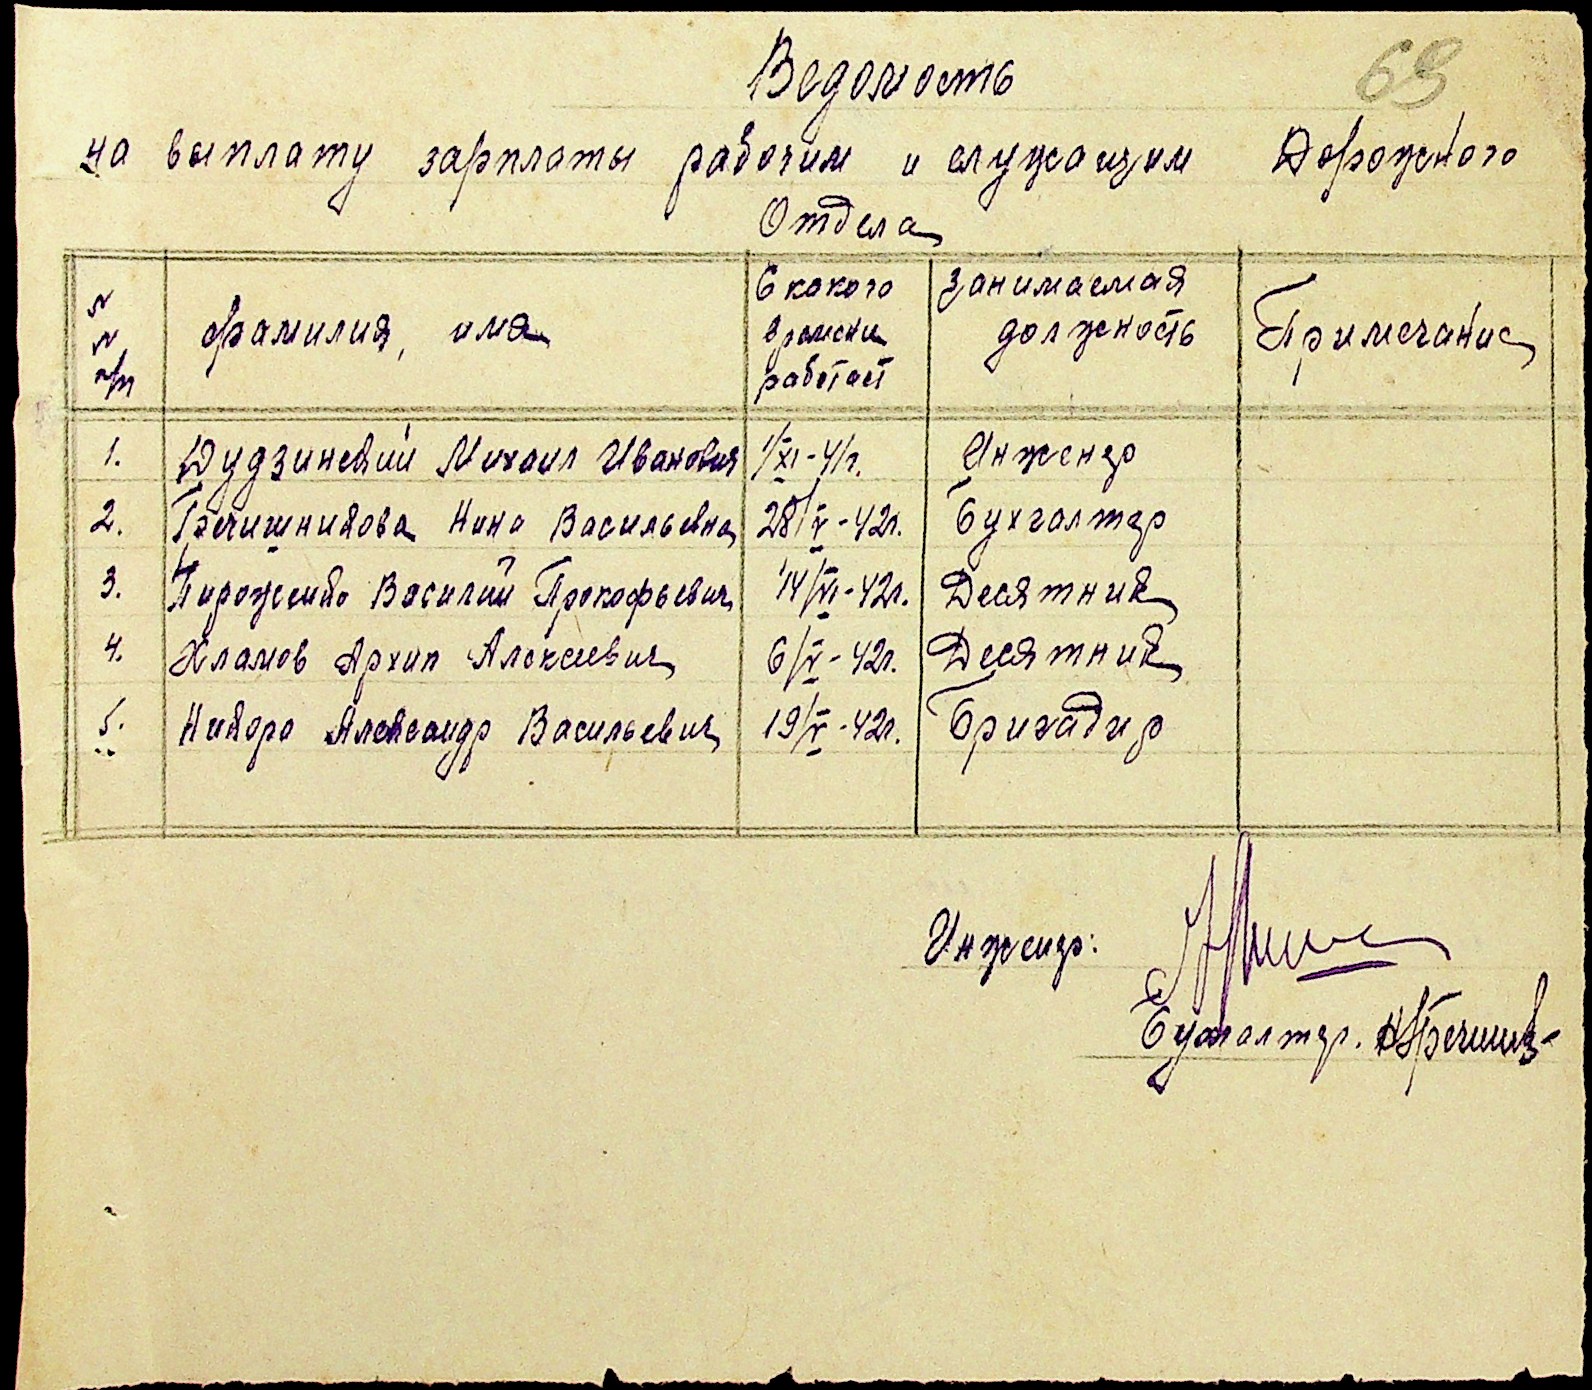 69
Ведомость
на выплату зарплаты рабочим и служащим Дорожного
Отдела
N N п/п
фамилия, имя
С какого
времени
работает
Занимаемая
должность
Примечание
1. Дудзинский Михаил Иванович 1/XI-41г. Инженер
2. Гречишникова Нина Васильевна 28/V-42г. Бухгалтер
3. Василий Прокофьевич 14/VI-42г. Десятник
4. Хламов Архип Алексеевич 6/V-42г. Десятник
5. Александр Васильевич 19/V-42г. Бригадир
Инженер:
Бухгалтер.